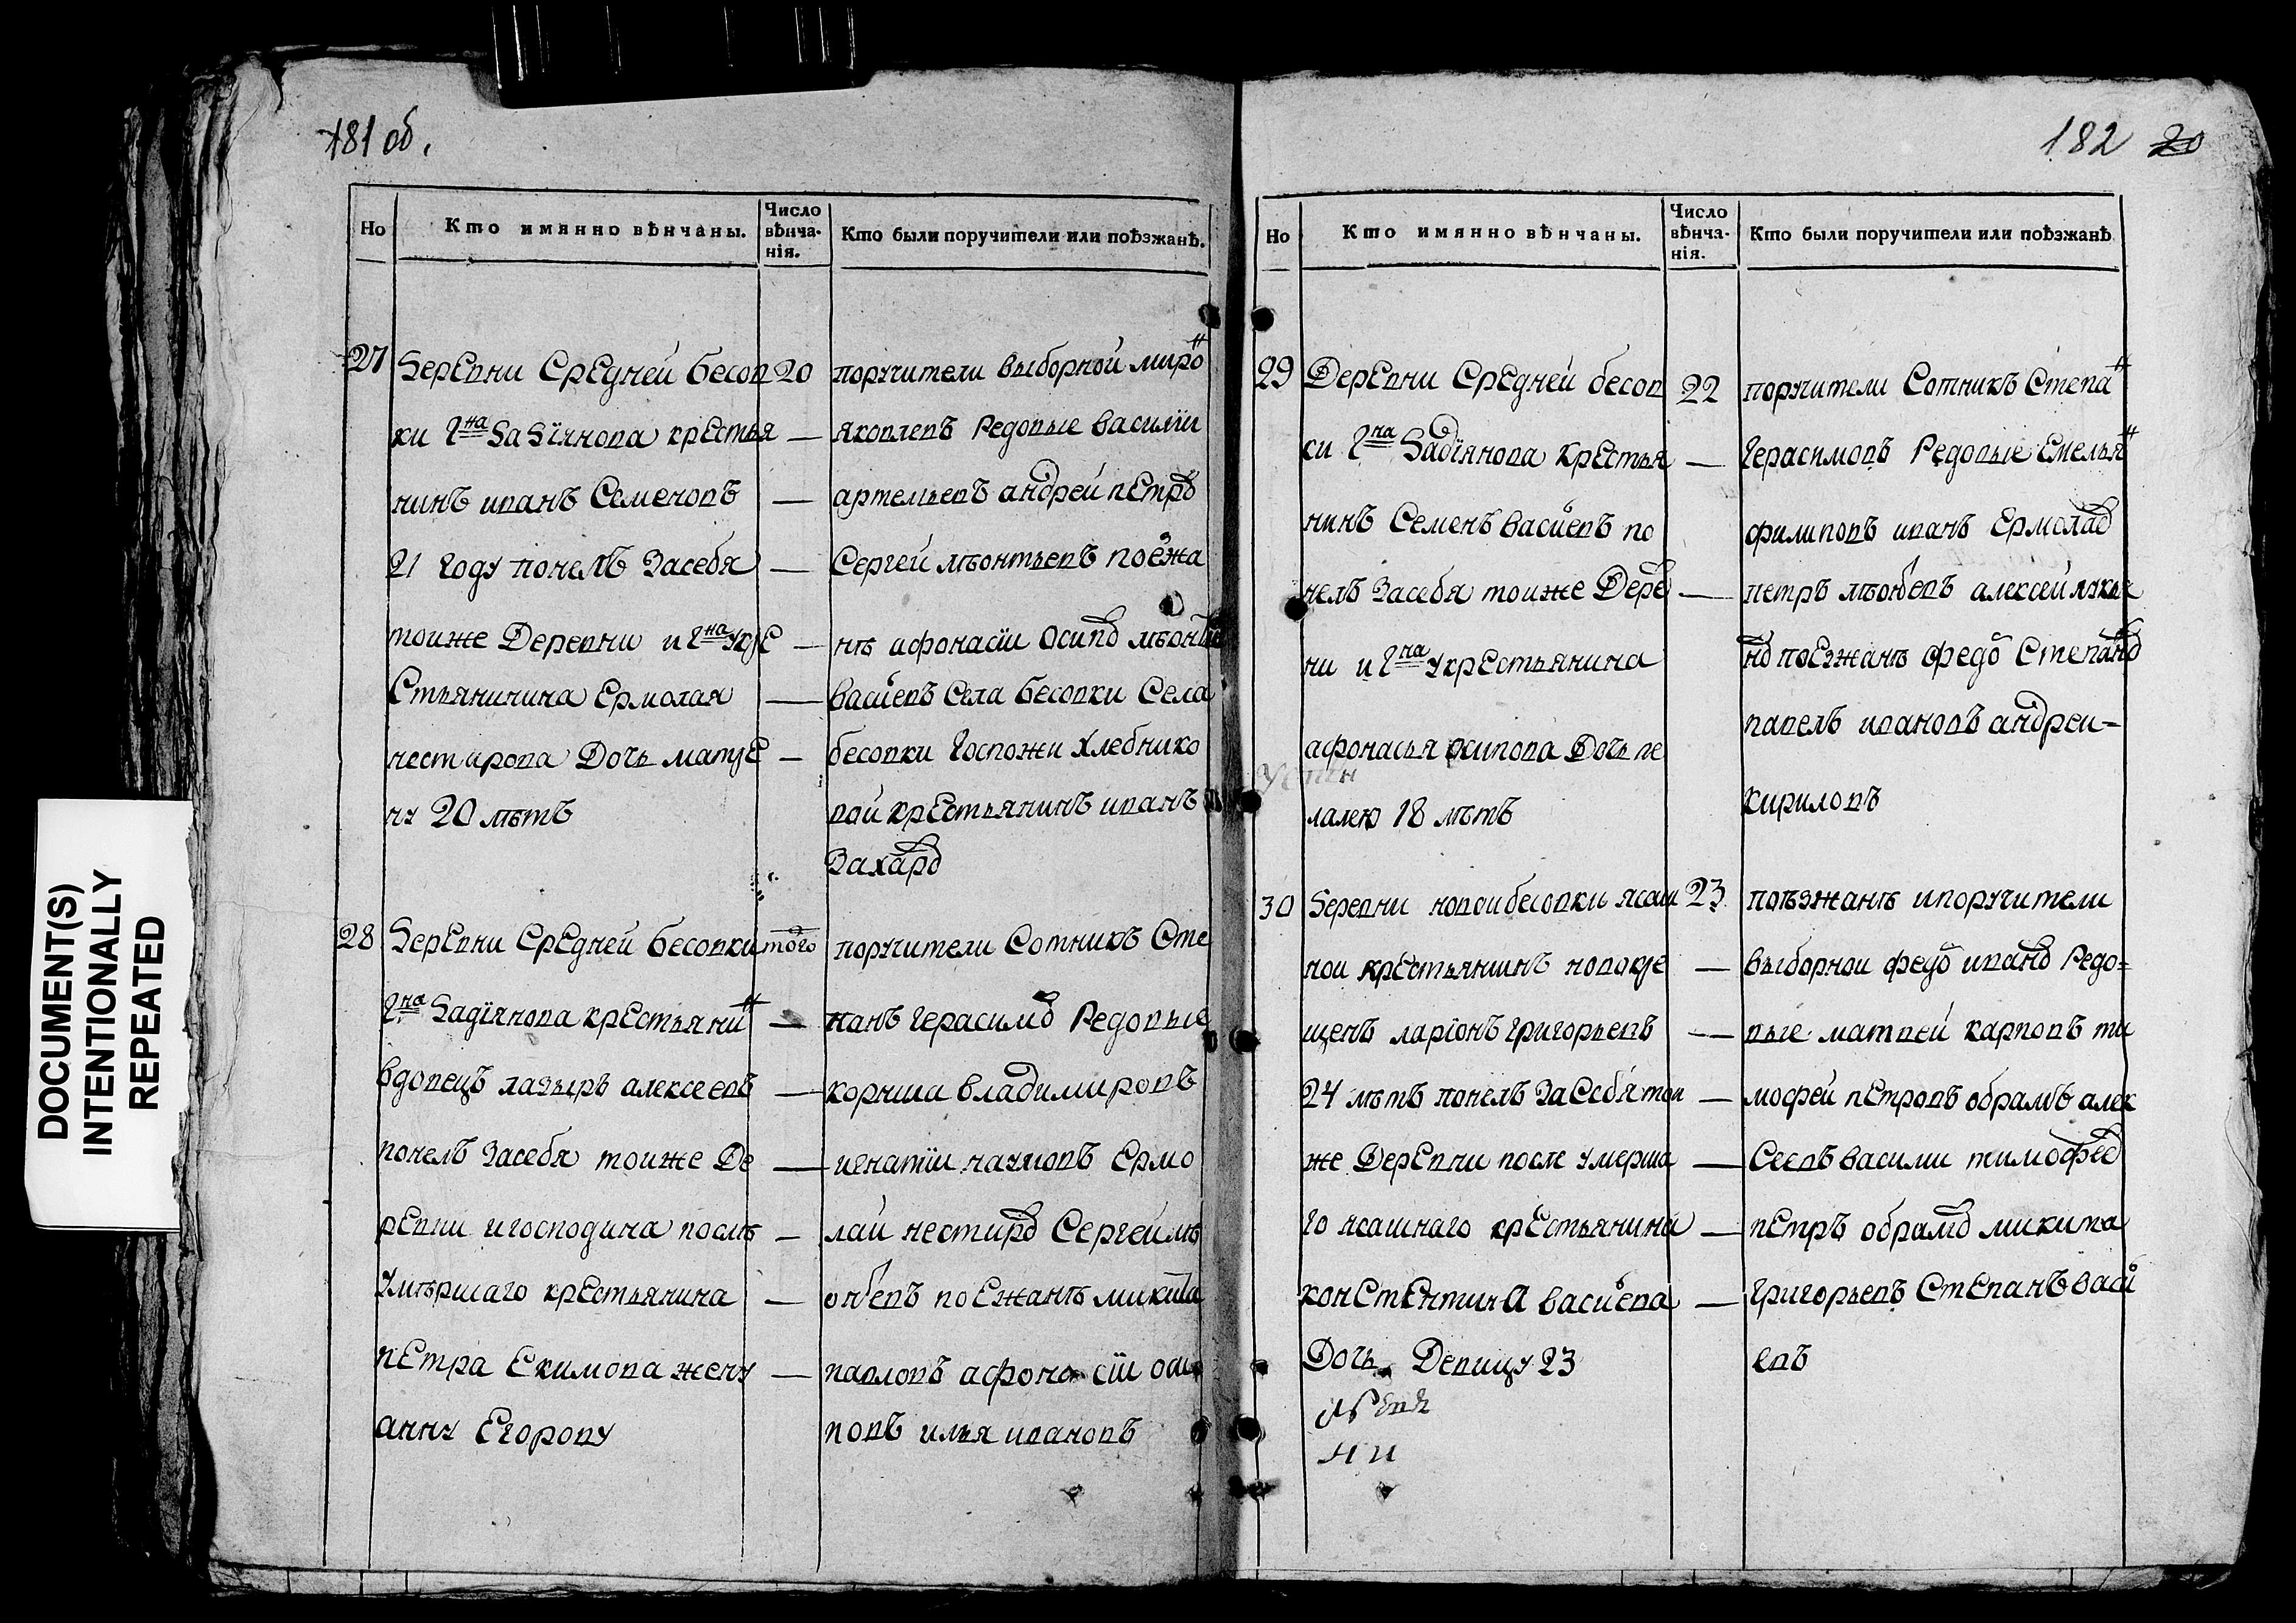 181 об.
Но
Кто имянно вѣнчаны.
Число вѣнча-нія.
Кто были поручители или поѣзжанѣ.
27
Деревни Средней Бесов
ки Гна Задіянова крестья
нинъ иванъ Семеновъ
21 году понелъ Засебя
тоиже Деревни и Гна укре
Стьянинина Ермолая
нестирова Дочь матре
ну 20 лѣтъ
20
поручители выборной миро
яковлевъ Редовые василіи
артельевъ андрей петро
Сергей лѣонтьевъ поежа
нѣ афонасіи Осипо лѣонтіи
васиевъ Села Бесовки Села
бесовки Госпожи Хлебнико
вой крестьянинъ иванъ
Захаро
28
Деревни Средней Бесовки
Гна Задіянова крестьяни
вдовецъ лазырь алексеевъ
понелъ Засебя тоиже Де
ревни игосподина послѣ
умѣршаго крестьянина
петра Екимова жену
анну Егорову
того
поручители Сотникъ Сте
панъ Герасимо Редовые
корныша владимировъ
игнатіи наумовъ Ермо
лаи нестиро Сергей лѣ
онбевъ поежанѣ микита
павловъ афонасіи оси
повъ илья ивановъ
182 20
Но
Кто имянно вѣнчаны.
Число вѣнча-нія.
Кто были поручители или поѣзжанѣ
29
Деревни Средней бесов
ки Гна Задіянова Крестья
нинъ Семенъ васиевъ по
нелъ Засебя тоиже Дере
ни и Гна укрестьянина
афонасья осипова Дочь пе
лалею 18 лѣтъ
22
поручители Сотникъ Степа
Герасимовъ Редовые Емелья
филиповъ иванъ Ермолае
петръ лѣонбевъ алексей лукья
но поезжанѣ федо Степано
павелъ ивановъ андреи-
кириловъ
30
Деревни новои бесовки ясаш
нои крестьянинъ новокре
щенъ ларіонъ григорьевъ
24 лѣтъ понелъ За Себя тои
же Деревни после умерша
го ясашнаго крестьянина
констентина васиева
Дочь Девицу 23
23
поѣзжанѣ ипоручители
выборнои федо ивано Редо=
вые матвеи карповъ ти
мофеи петровъ обрамъ алек
Сеевъ васили тимофее
петръ обрамо микита
григорьевъ Степанъ васи
евъ
DOCUMENT(S)
INTENTIONALLY
REPEATED